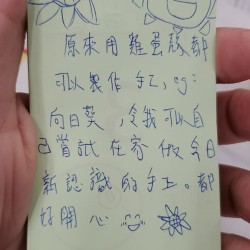 原來用雞蛋殼都
可以製作手工,eg:
向日葵,令我可以自
己嘗試在家做今日
新認識的手工。都
好開心